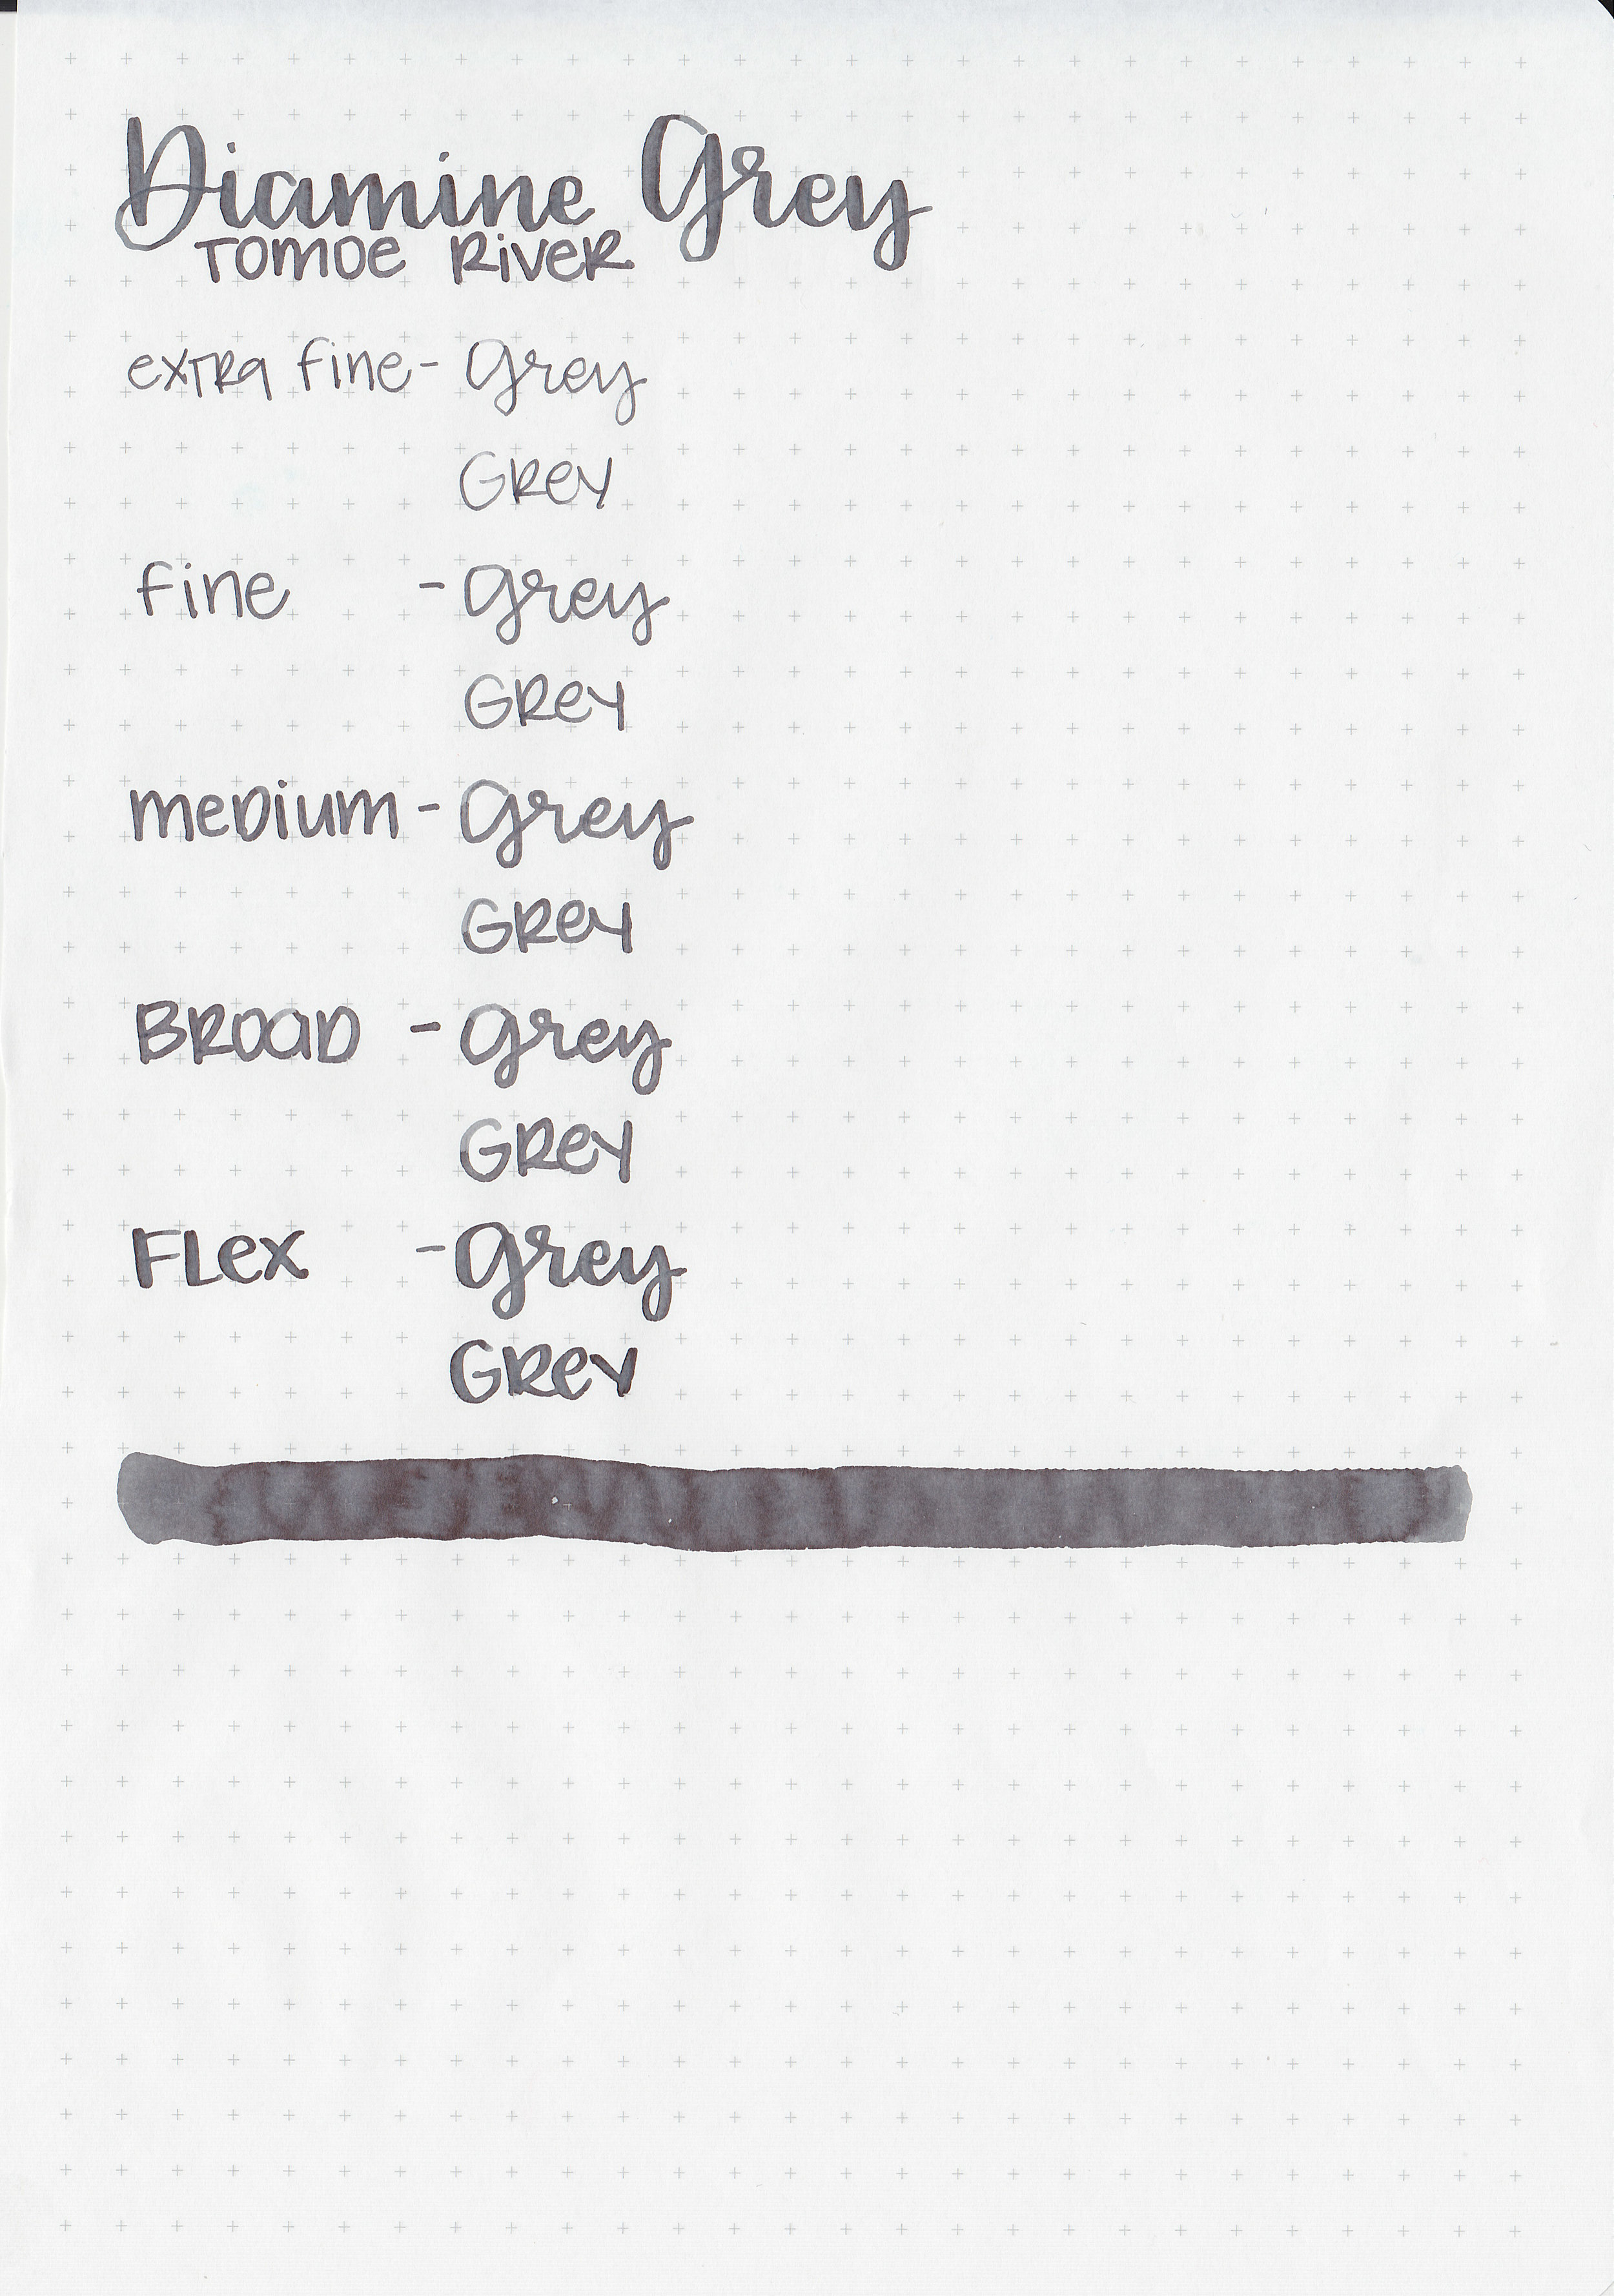 Diamine Grey
Tomoe River
extra fine - Grey
Grey
fine - Grey
Grey
medium - Grey
Grey
Broad - Grey
Grey
Flex - Grey
Grey